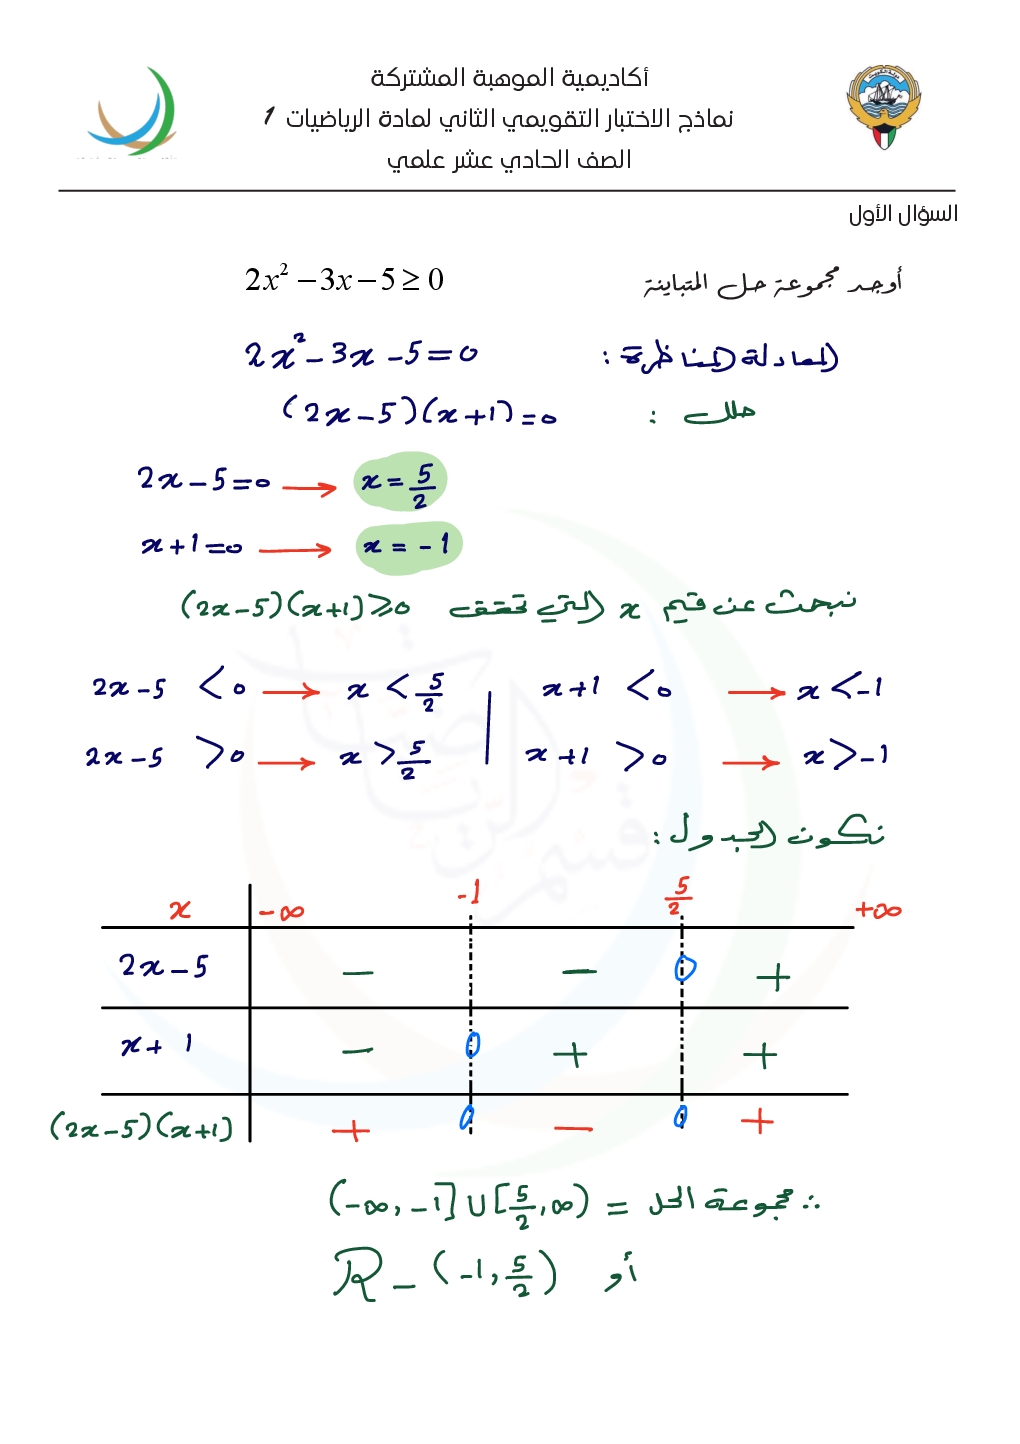 أكاديمية الموهبة المشتركة
نماذج الاختبار التقويمي الثاني لمادة الرياضيات 1
الصف الحادي عشر علمي
السؤال الأول
أوجد مجموعة حل المتباينة 2x² − 3x − 5 ≥ 0
المعادلة المناظرة : 2x² − 3x − 5 = 0
حلل : (2x − 5)(x + 1) = 0
2x − 5 = 0 → x = 5/2
x + 1 = 0 → x = −1
نبحث عن قيم x التي تحقق (2x − 5)(x + 1) ≥ 0
2x − 5 < 0 → x < 5/2 | x + 1 < 0 → x < −1
2x − 5 > 0 → x > 5/2 | x + 1 > 0 → x > −1
نكون الجدول :
x −∞ −1 5/2 +∞
2x − 5 − − 0 +
x + 1 − 0 + +
(2x − 5)(x + 1) + 0 − 0 +
∴ مجموعة الحل = (−∞, −1] ∪ [5/2, ∞)
أو R − (−1, 5/2)
قسم الرياضيات